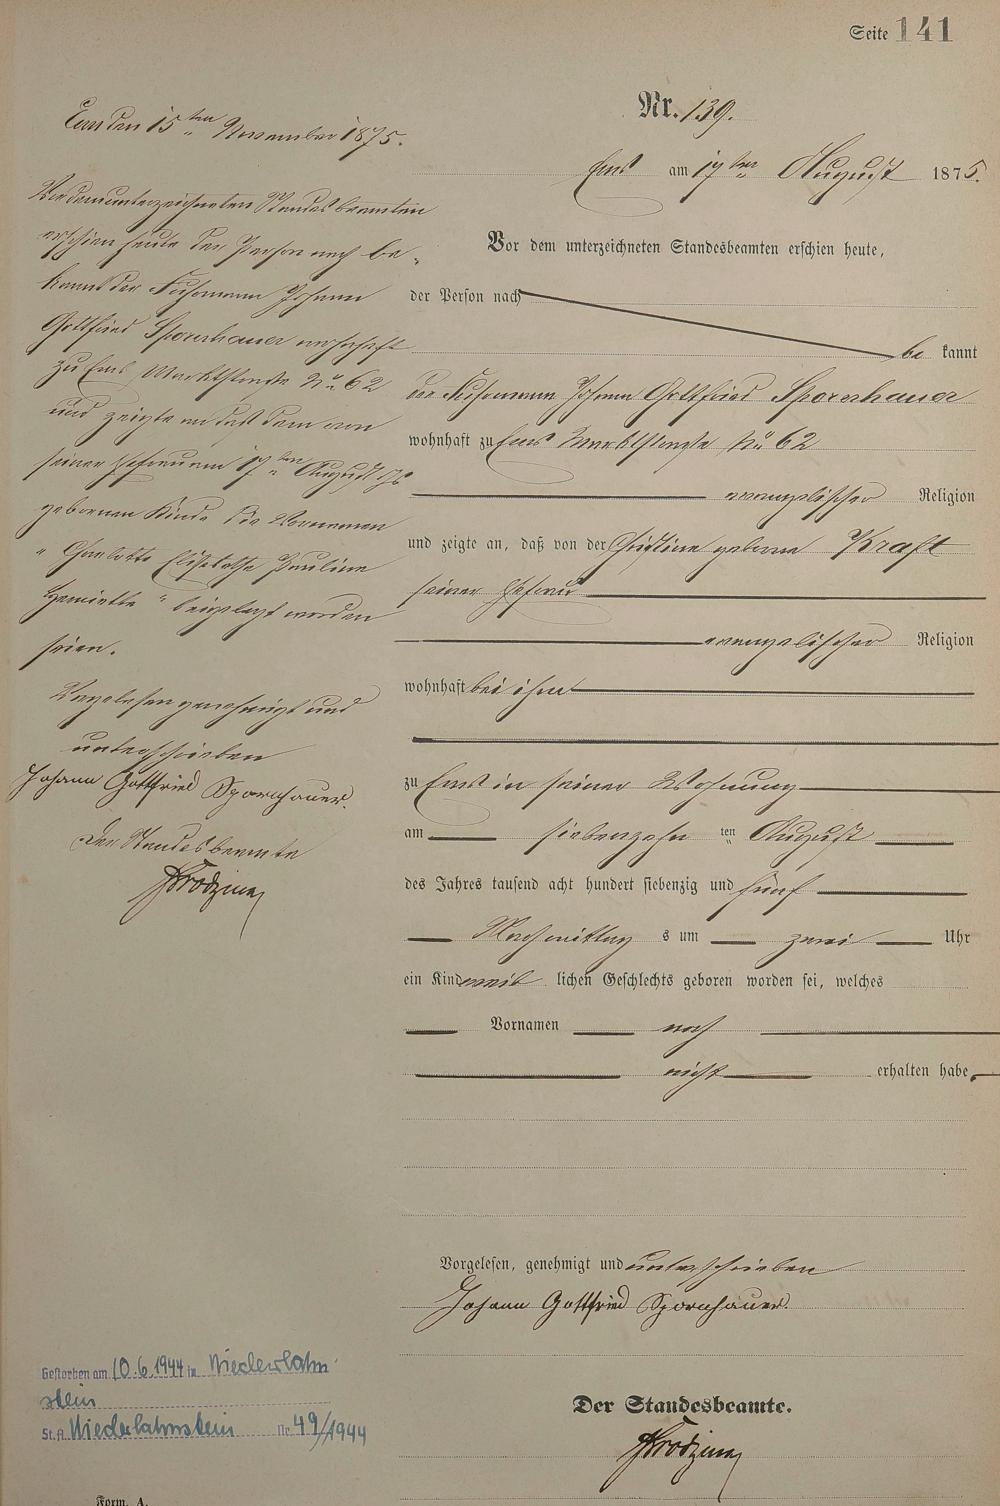 Seite 141
Nr. 139.
Ems am 17ten August 1875.
Vor dem unterzeichneten Standesbeamten erschien heute,
der Person nach
be kannt
der Fuhrmann Johann Gottfried Sporenhauer
wohnhaft zu Ems Marktstraße No 62
evangelischer Religion
und zeigte an, daß von der Christine geborne Kraft
seiner Ehefrau
evangelischer Religion
wohnhaft bei ihm
zu Ems in seiner Wohnung
am siebenzehn ten August
des Jahres tausend acht hundert siebenzig und fünf
Nachmittag s um zwei Uhr
ein Kind weib lichen Geschlechts geboren worden sei, welches
Vornamen noch
nicht erhalten habe.
Vorgelesen, genehmigt und unterschrieben
Johann Gottfried Spornhauer.
Der Standesbeamte.
Ems den 15ten November 1875.
Vor dem unterzeichneten Standesbeamten
erschien heute der Person nach be-
kannt der Fuhrmann Johann
Gottfried Sporenhauer wohnhaft
zu Ems, Marktstraße No 62
und zeigte an daß dem von
seiner Ehefrau am 17ten August Js
gebornen Kinde die Vornamen
"Charlotte Elisabethe Pauline
Henriette" beigelegt worden
seien.
Vorgelesen genehmigt und
unterschrieben
Johann Gottfried Spornhauer.
Der Standesbeamte
Gestorben am 10.6.1944 in Niederlahn-
stein
St.A. Niederlahnstein Nr. 49/1944
Form. A.